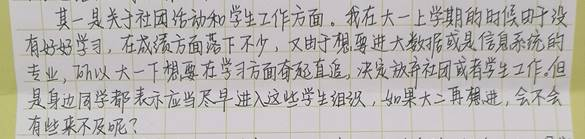 其一是关于社团活动和学生工作方面。我在大一上学期的时候由于没
有好好学习，在成绩方面落下不少，又由于想要进大数据或是信息系统的
专业，所以大一下想要在学习方面奋起直追，决定放弃社团或者学生工作。但
是身边同学都表示应当尽早进入这些学生组织，如果大二再想进，会不会
有些来不及呢？